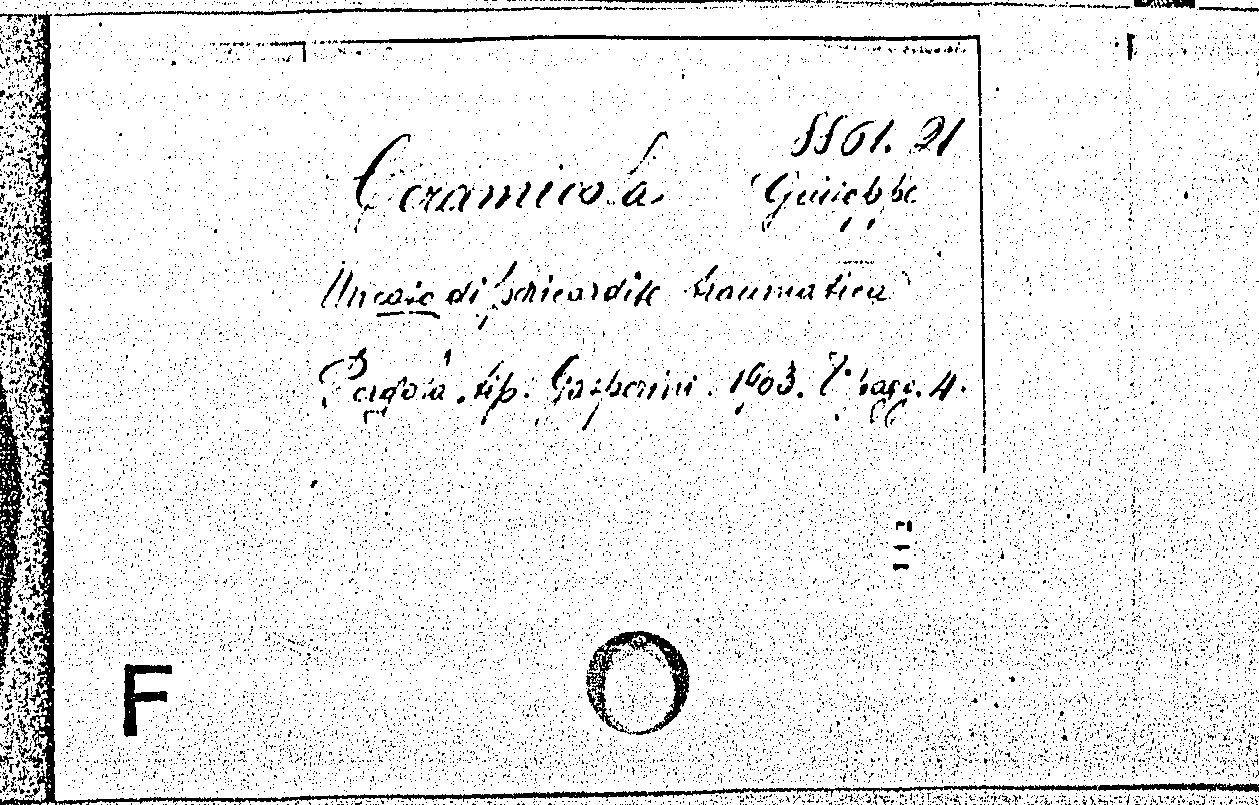 SS61. 21
Ceramicola Giuseppe
Un caso di pericardite traumatica
Pergola. tip. Gasperini. 1903. 8° pagg. 4.
F